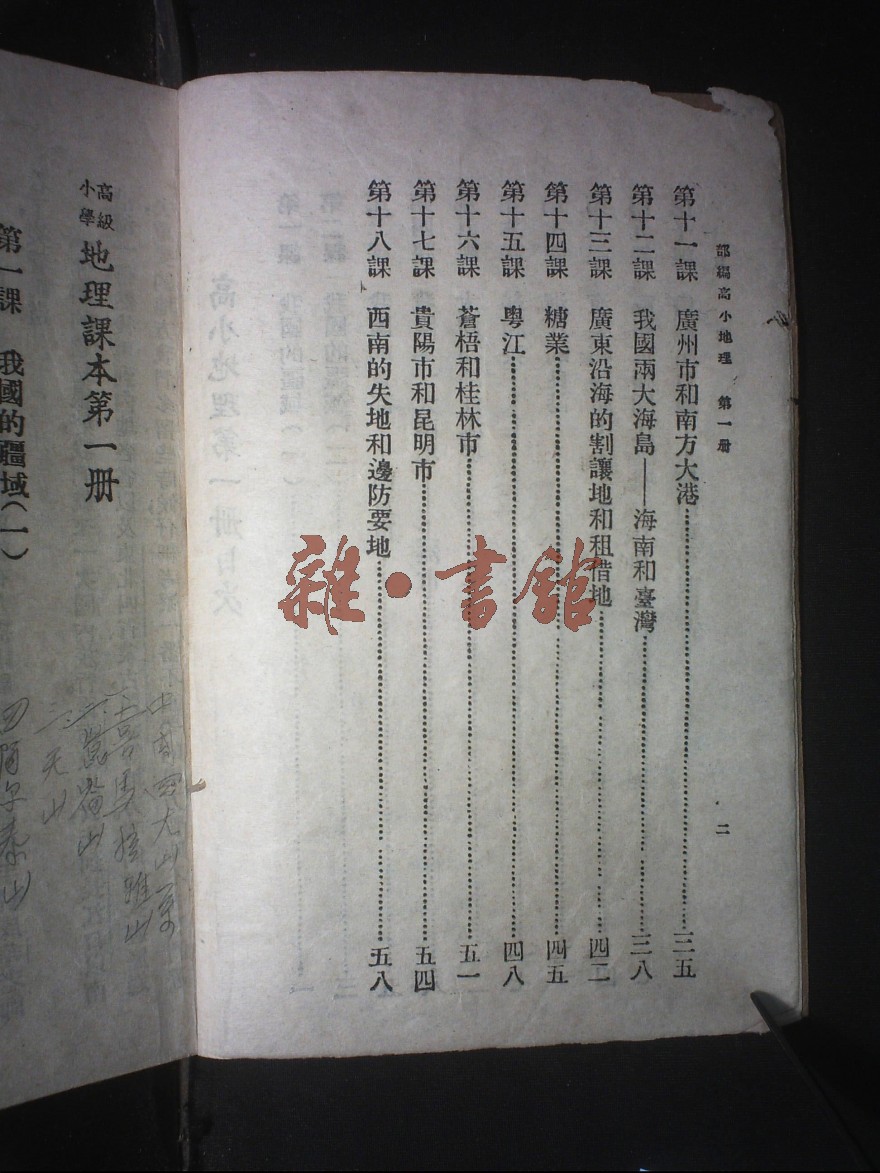 部編高小地理 第一册
二
第十一課 廣州市和南方大港……三五
第十二課 我國兩大海島——海南和臺灣……三八
第十三課 廣東沿海的割讓地和租借地……四二
第十四課 糖業……四五
第十五課 粵江……四八
第十六課 蒼梧和桂林市……五一
第十七課 貴陽市和昆明市……五四
第十八課 西南的失地和邊防要地……五八
雜·書館
高級小學 地理課本第一册
第一課 我國的疆域(一)
中國四大山系
一喜馬拉雅山
二崑崙山
三天山
四阿尔泰山